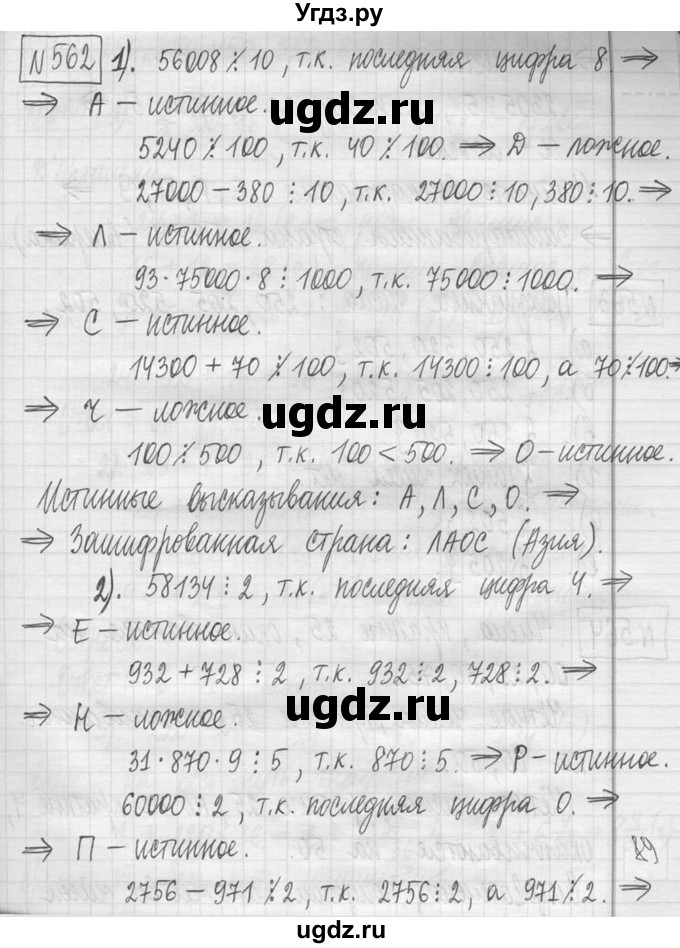 Угдз.ру
№562 1). 56008 ⋮̸ 10, т.к. последняя цифра 8 ⇒
⇒ А – истинное.
5240 ⋮̸ 100, т.к. 40 ⋮̸ 100. ⇒ Д – ложное.
27000 – 380 ⋮ 10, т.к. 27000 ⋮ 10, 380 ⋮ 10. ⇒
⇒ Л – истинное.
93 · 75000 · 8 ⋮ 1000, т.к. 75000 ⋮ 1000. ⇒
⇒ С – истинное.
14300 + 70 ⋮̸ 100, т.к. 14300 ⋮ 100, а 70 ⋮̸ 100. ⇒
⇒ Ч – ложное.
100 ⋮̸ 500, т.к. 100 < 500. ⇒ О – истинное.
Истинные высказывания: А, Л, С, О. ⇒
⇒ Зашифрованная страна: ЛАОС (Азия).
2). 58134 ⋮ 2, т.к. последняя цифра 4. ⇒
⇒ Е – истинное.
932 + 728 ⋮ 2, т.к. 932 ⋮ 2, 728 ⋮ 2. ⇒
⇒ Н – ложное.
31 · 870 · 9 ⋮ 5, т.к. 870 ⋮ 5. ⇒ Р – истинное.
60000 ⋮ 2, т.к. последняя цифра 0. ⇒
⇒ П – истинное.
89
2756 – 971 ⋮̸ 2, т.к. 2756 ⋮ 2, а 971 ⋮̸ 2. ⇒
ugdz.ru
ugdz.ru
ugdz.ru
ugdz.ru
ugdz.ru
ugdz.ru